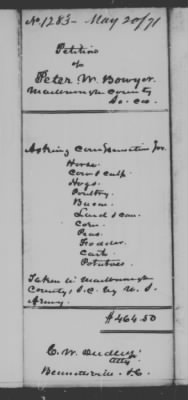 No 1283 - May 20/71
Petition
of
Peter W. Bowyer.
Marlborough County
So. Ca.
Asking Compensation for.
Horse.
Cow & calf.
Hogs.
Poultry.
Bacon.
Lard 1 can.
Corn.
Peas.
Fodder.
Cart.
Potatoes.
Taken in Marlborough
County, S.C. by U. S.
Army.
$464.50
C. W. Dudley
Atty.
Bennettsville. S.C.